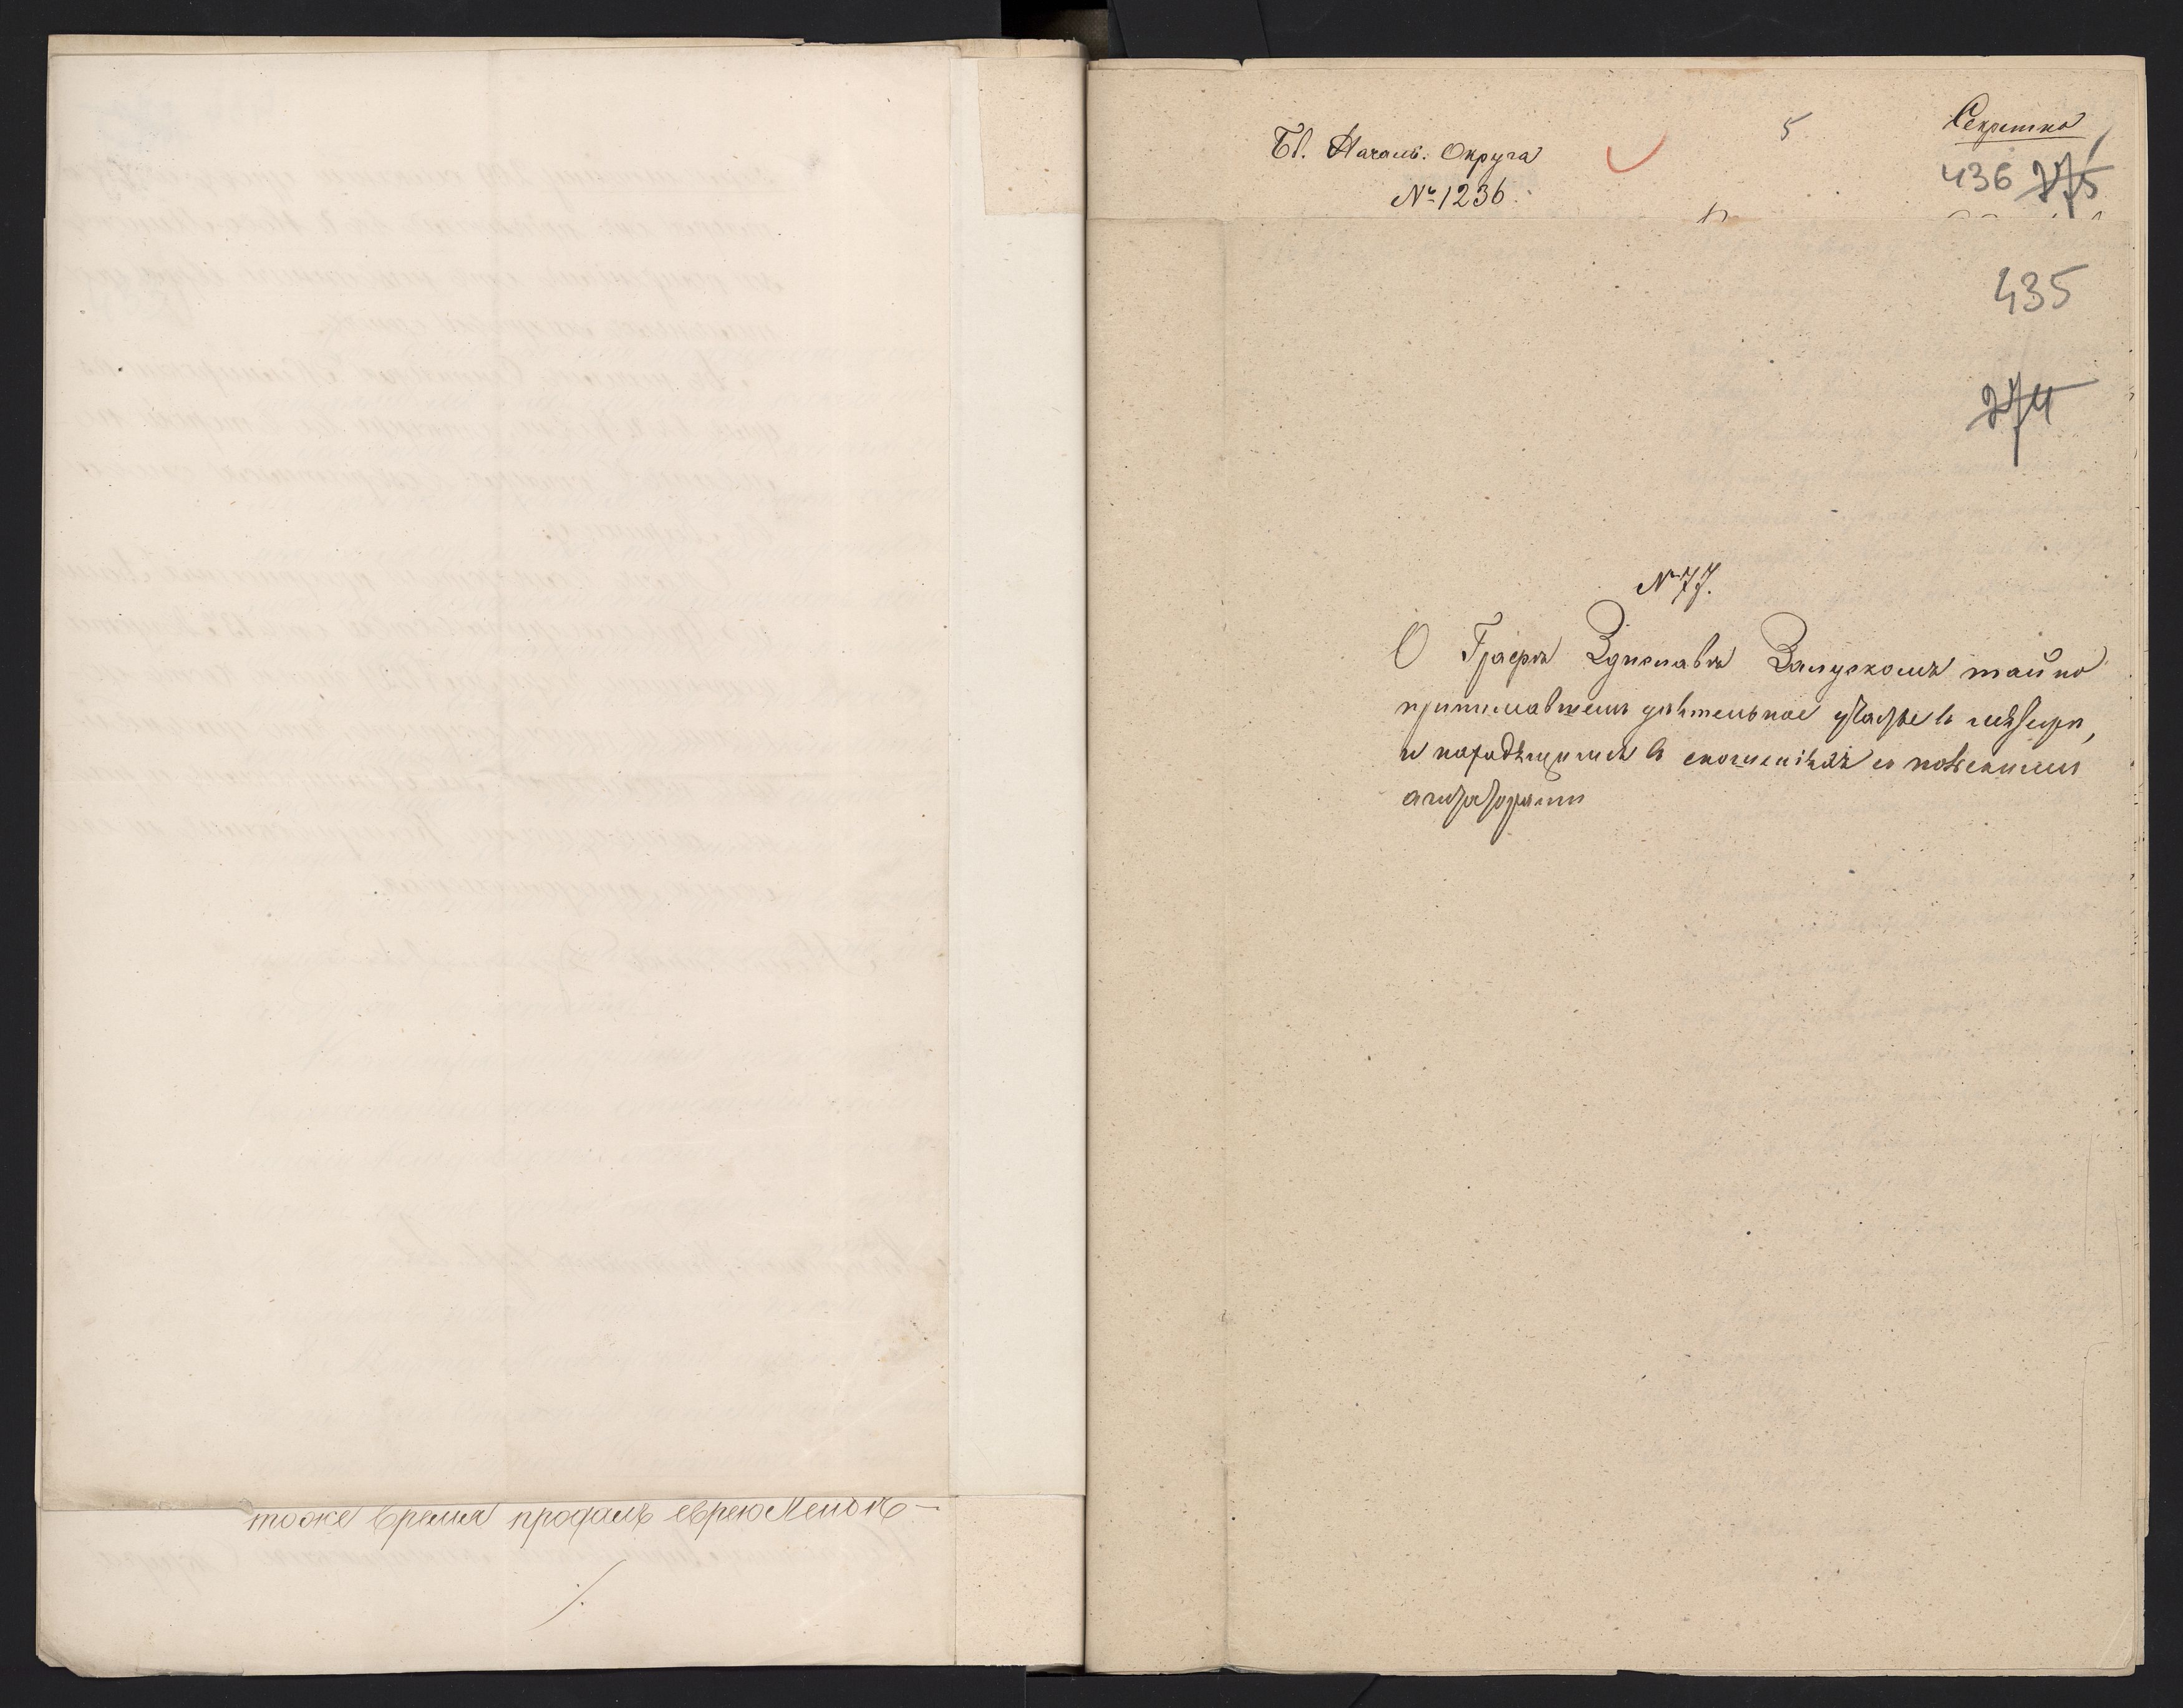 тоже время продалъ еврею
Секретно
Бл. Началь. Округа
5
№ 1236.
436 275
435
274
№ 77.
О Графѣ Здиславѣ Залускомъ тайно
принимавшемъ дѣятельное участіе въ мятежѣ,
и находящимся въ сношеніяхъ съ польскими
агитаторами